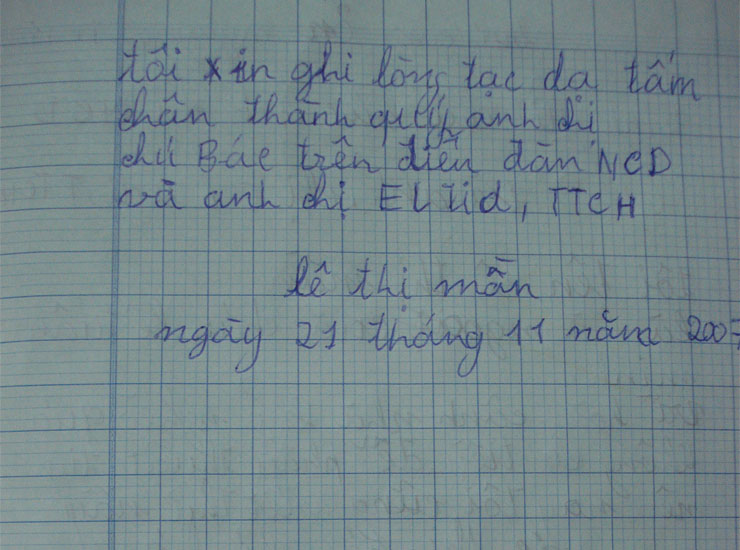 tôi xin ghi lòng tạc dạ tấm
chân thành quý anh chị
chú Bác trên diễn đàn NCD
và anh chị ELTid, TTCH
lê thị mần
ngày 21 tháng 11 năm 2007